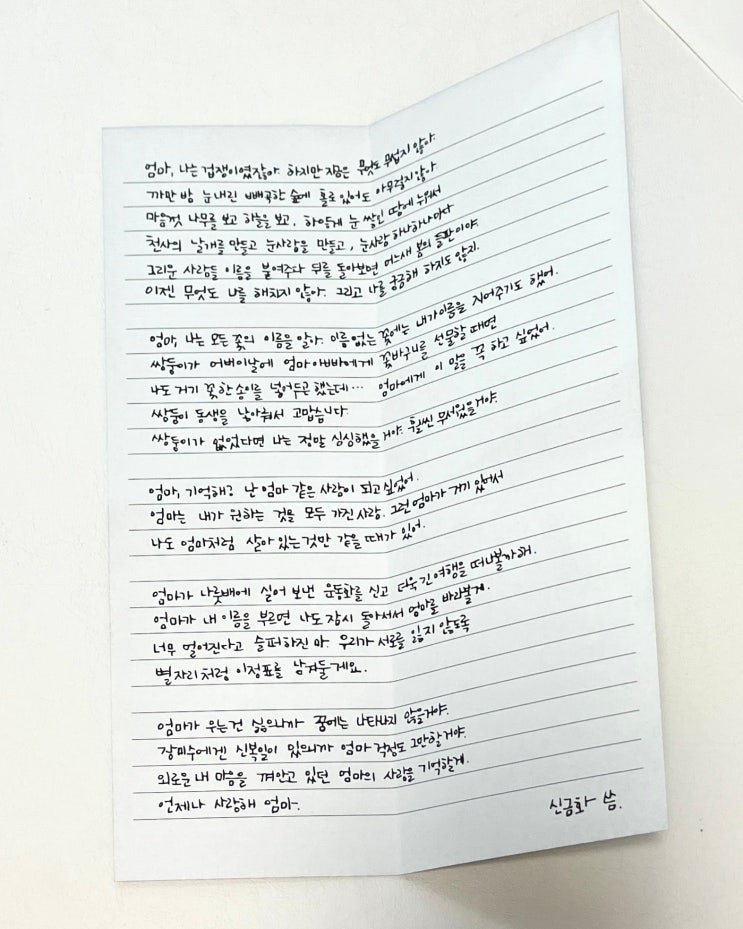 엄마, 나는 겁쟁이였잖아. 하지만 지금은 무엇도 무섭지 않아.
까만 밤 눈 내린 빼곡한 숲에 홀로 있어도 아무렇지 않아
마음껏 나무를 보고 하늘을 보고, 하얗게 눈 쌓인 땅에 누워서
천사의 날개를 만들고 눈사람을 만들고, 눈사람 하나하나마다
그리운 사람들 이름을 붙여주다 뒤를 돌아보면 어느새 봄의 들판이야.
이젠 무엇도 나를 해치지 않아. 그리고 나를 궁금해 하지도 않지.
엄마, 나는 모든 꽃의 이름을 알아. 이름 없는 꽃에는 내가 이름을 지어주기도 했어.
쌍둥이가 어버이날에 엄마 아빠에게 꽃바구니를 선물할 때면
나도 거기 꽃 한 송이를 넣어두곤 했는데… 엄마에게 이 말을 꼭 하고 싶었어.
쌍둥이 동생을 낳아줘서 고맙습니다.
쌍둥이가 없었다면 나는 정말 심심했을 거야. 훨씬 무서웠을 거야.
엄마, 기억해? 난 엄마 같은 사람이 되고 싶었어.
엄마는 내가 원하는 것을 모두 가진 사람. 그런 엄마가 거기 있어서
나도 엄마처럼 살아 있는 것만 같을 때가 있어.
엄마가 나룻배에 실어 보낸 운동화를 신고 더욱 긴 여행을 떠나볼까 해.
엄마가 내 이름을 부르면 나도 잠시 돌아서서 엄마를 바라볼게.
너무 멀어진다고 슬퍼하진 마. 우리가 서로를 잃지 않도록
별자리처럼 이정표를 남겨둘게요.
엄마가 우는 건 싫으니까 꿈에는 나타나지 않을 거야.
장미수에겐 신복일이 있으니까 엄마 걱정도 그만할 거야.
외로운 내 마음을 껴안고 있던 엄마의 사랑을 기억할게.
언제나 사랑해 엄마.
신금화 씀.